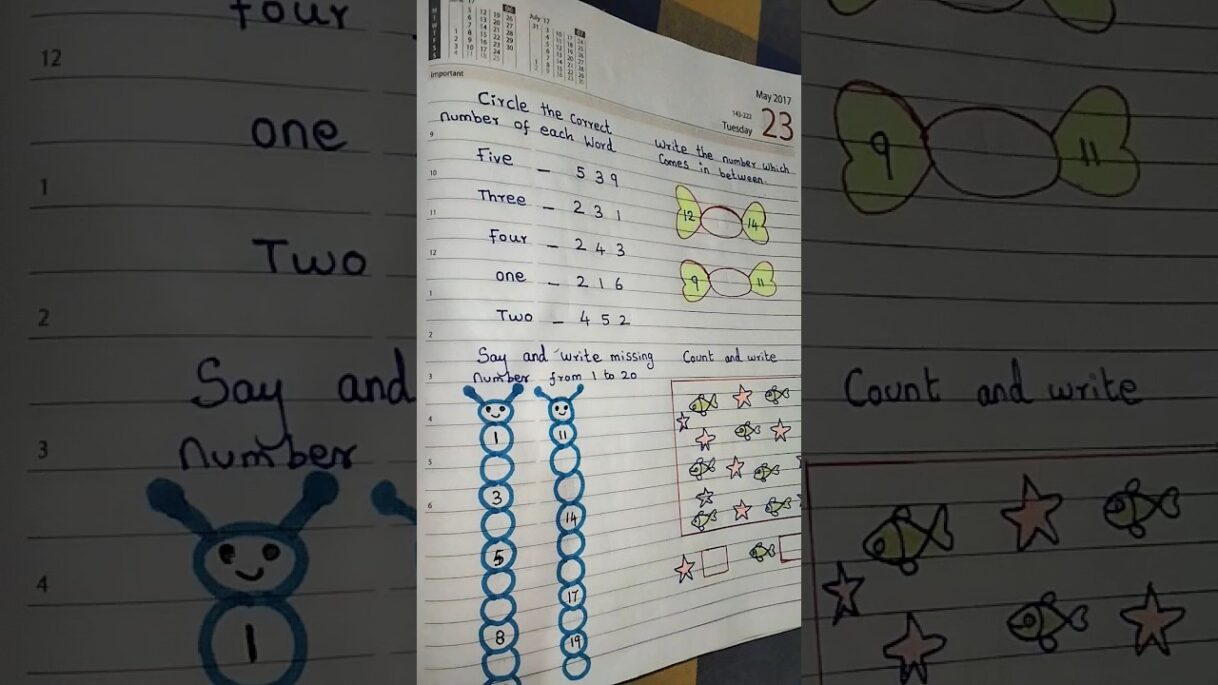 June 17
July '17
important
May 2017
143-222
Tuesday 23
Circle the Correct
number of each Word
Five - 5 3 9
Three - 2 3 1
Four - 2 4 3
one - 2 1 6
Two - 4 5 2
Write the number which
Comes in between.
12 14
9 11
Say and write missing
number from 1 to 20
1
3
5
8
11
14
17
19
Count and write
9
10
11
12
1
2
3
4
5
6
four
12
one
1
Two
2
Say and
3
number
4
1
9 11
Count and write